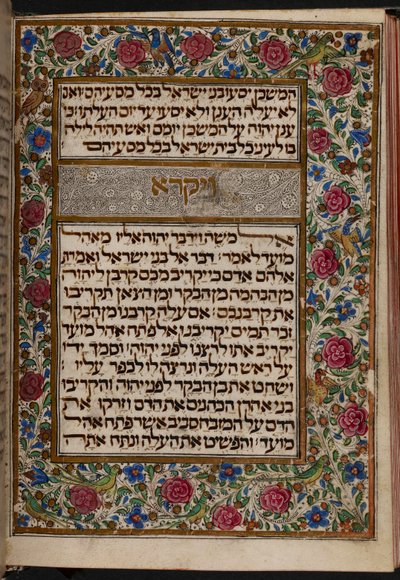 המשכן יסעו בני ישראל בכל מסעיהם ואם
לא יעלה הענן ולא יסעו עד יום העלתו כי
ענן יהוה על המשכן יומם ואש תהיה לילה
בו לעיני כל בית ישראל בכל מסעיהם
ויקרא
אל משה וידבר יהוה אליו מאהל
מועד לאמר׃ דבר אל בני ישראל ואמרת
אלהם אדם כי יקריב מכם קרבן ליהוה
מן הבהמה מן הבקר ומן הצאן תקריבו
את קרבנכם׃ אם עלה קרבנו מן הבקר
זכר תמים יקריבנו אל פתח אהל מועד
יקריב אתו לרצנו לפני יהוה׃ וסמך ידו
על ראש העלה ונרצה לו לכפר עליו׃
ושחט את בן הבקר לפני יהוה והקריבו
בני אהרן הכהנים את הדם וזרקו את
הדם על המזבח סביב אשר פתח אהל
מועד׃ והפשיט את העלה ונתח אתה